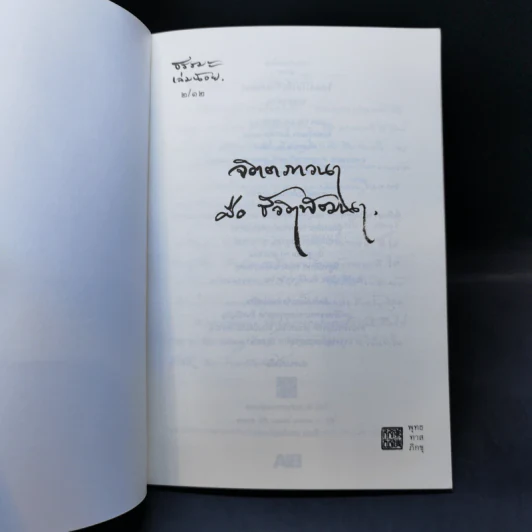 ธรรมะ
เล่มน้อย.
๒/๑๒
จิตตภาวนา
คือ ชีวิตพัฒนา.
พุทธ
ทาส
ภิกขุ